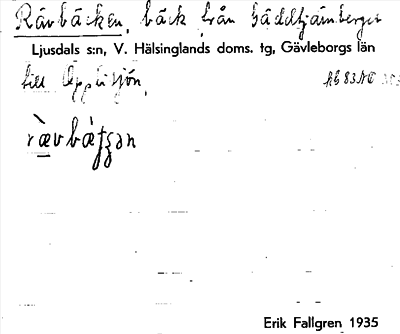 Rävbäcken, bäck från Gäddtjärnberget
Ljusdals s:n, V. Hälsinglands doms. tg, Gävleborgs län
till Öppelisjön.
rævbæʃʒən
Erik Fallgren 1935